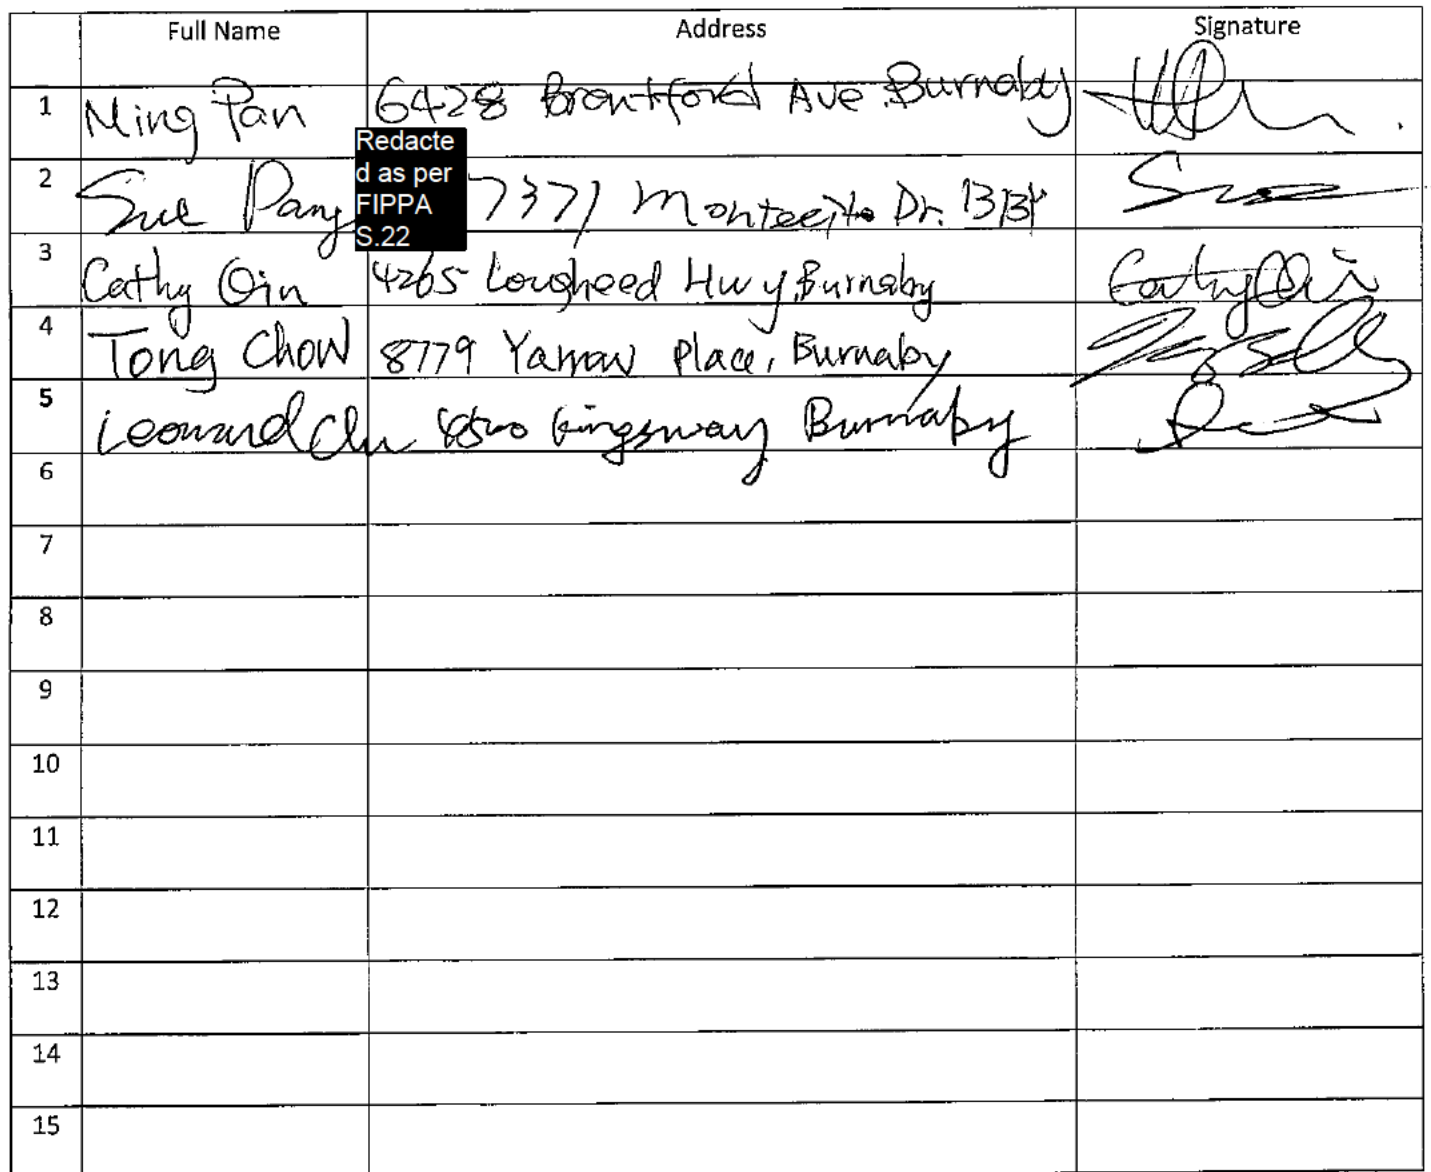 Full Name Address Signature
1 Ming Pan 6428 Brantford Ave Burnaby
Redacte
d as per
FIPPA
S.22
2 Sue Pang 7371 Montecito Dr. BBY
3 Cathy Qin 4265 Lougheed Hwy, Burnaby Cathy Qin
4 Tong Chow 8779 Yarrow Place, Burnaby
5 Leonard Chu Kingsway Burnaby
6
7
8
9
10
11
12
13
14
15